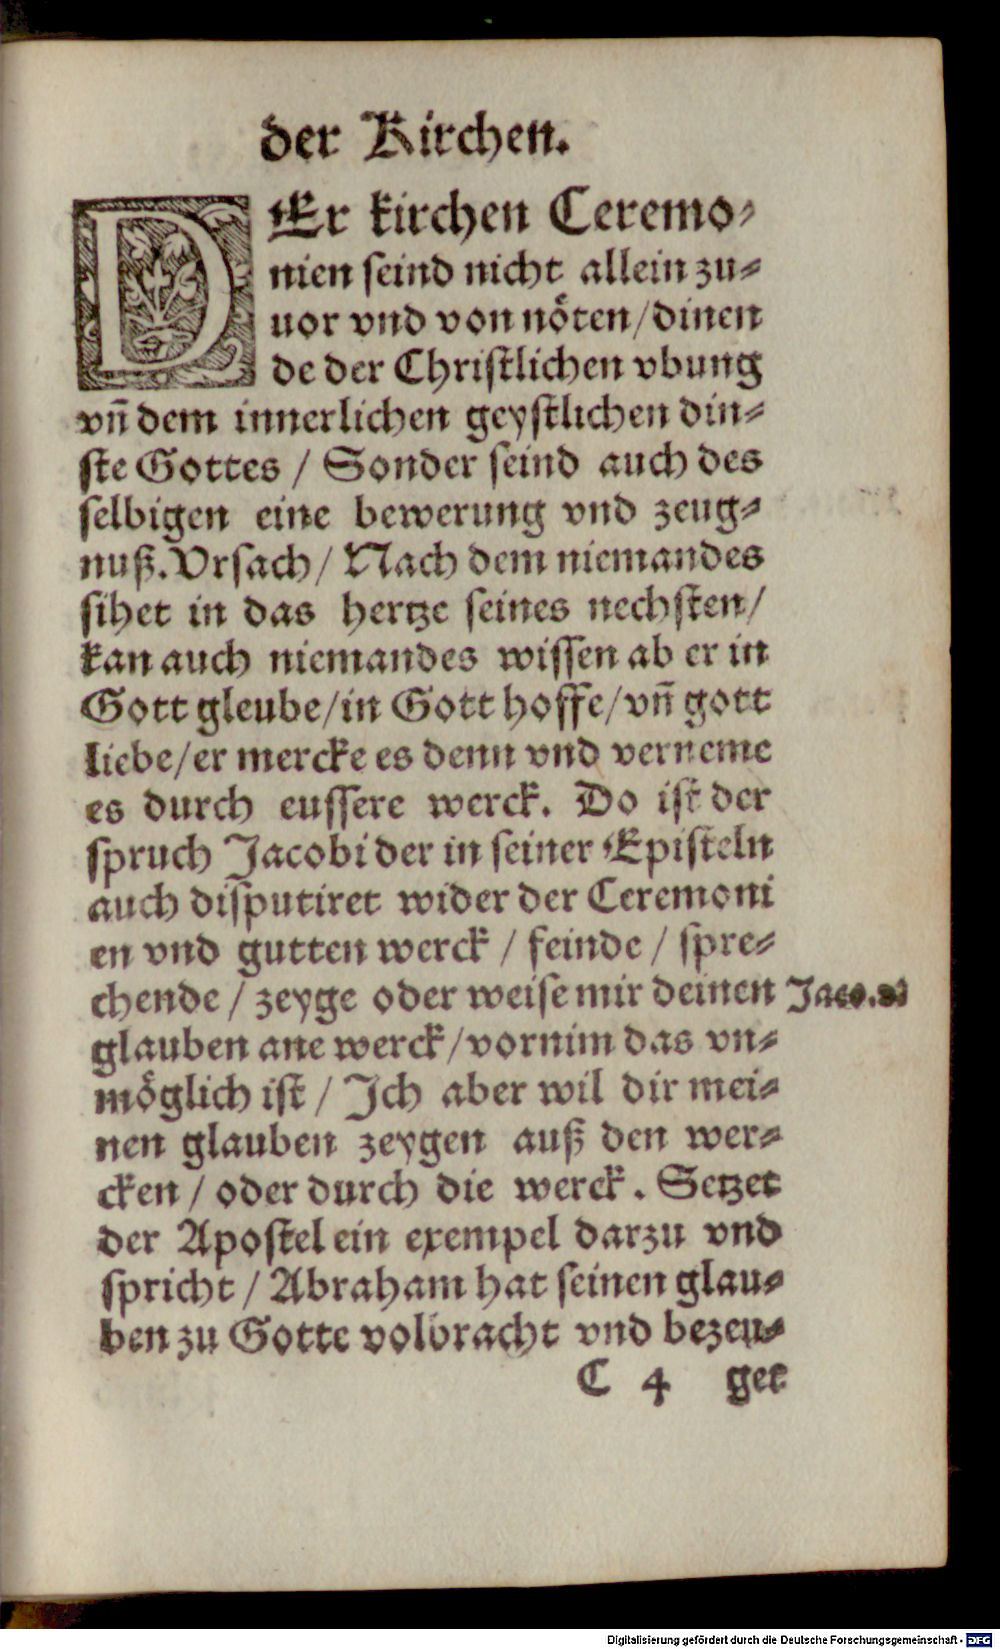 der Kirchen.
DEr kirchen Ceremo-
nien seind nicht allein zu-
uor vnd von nöten/dinen
de der Christlichen vbung
vñ dem innerlichen geystlichen din-
ste Gottes / Sonder seind auch des
selbigen eine bewerung vnd zeug-
nuß. Vrsach/ Nach dem niemandes
sihet in das hertze seines nechsten/
kan auch niemandes wissen ab er in
Gott gleube/in Gott hoffe/vñ gott
liebe/er mercke es denn vnd verneme
es durch eussere werck. Do ist der
spruch Jacobi der in seiner Episteln
auch disputiret wider der Ceremoni
en vnd gutten werck / feinde / spre-
chende / zeyge oder weise mir deinen
Jaco.
glauben ane werck/vornim das vn-
möglich ist / Ich aber wil dir mei-
nen glauben zeygen auß den wer-
cken / oder durch die werck. Setzet
der Apostel ein exempel darzu vnd
spricht / Abraham hat seinen glau-
ben zu Gotte volbracht vnd bezeu-
C 4 get
Digitalisierung gefördert durch die Deutsche Forschungsgemeinschaft - DFG